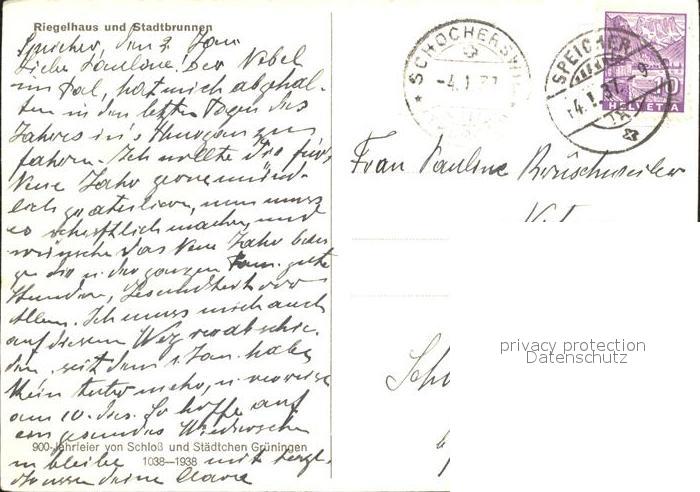 Riegelhaus und Stadtbrunnen
Speicher, den 3. Jan.
Liebe Pauline. Der Nebel
im Tal, hat mich abgehal-
ten in den letzten Tagen des
Jahres in's Thurgau zu
fahren. Ich wollte Dir für's
Neue Jahr gerne münd-
lich gratulieren, nun muss
es schriftlich machen, und
wünsche das Neue Jahr bring
ge dir u. der ganzen Fam. gute
Stunden, Gesundheit vor
Allem. Ich muss mich auch
auf diesem Weg verabschie-
den, seit dem 1. Jan. habe
kein Auto mehr, u. verreise
am 10. ds. So hoffe auf
ein gesundes Wiedersehen
900-Jahrfeier von Schloß und Städtchen Grüningen
u. bleibe mit herzl.
1038—1938
Grüssen deine Clara
SCHOCHERSWIL
-4.I.37
SPEICHER
-4.I.37.-9
10
HELVETIA
Frau Pauline Brüschweiler
Sch
privacy protection
Datenschutz